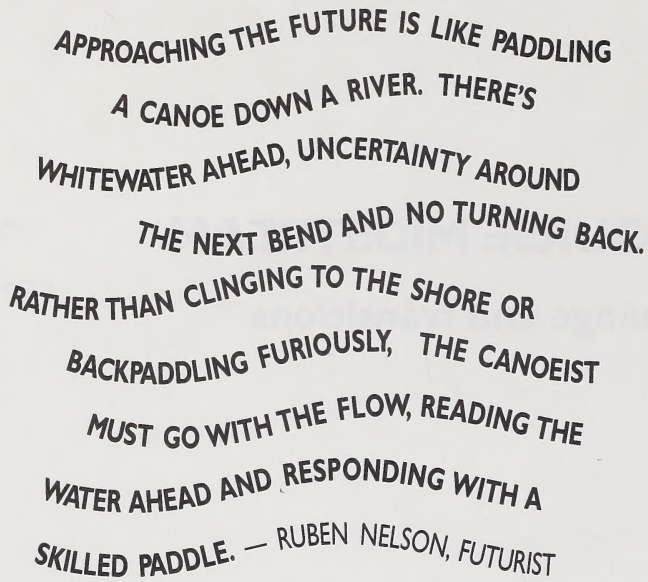 APPROACHING THE FUTURE IS LIKE PADDLING
A CANOE DOWN A RIVER. THERE'S
WHITEWATER AHEAD, UNCERTAINTY AROUND
THE NEXT BEND AND NO TURNING BACK.
RATHER THAN CLINGING TO THE SHORE OR
BACKPADDLING FURIOUSLY, THE CANOEIST
MUST GO WITH THE FLOW, READING THE
WATER AHEAD AND RESPONDING WITH A
SKILLED PADDLE. — RUBEN NELSON, FUTURIST